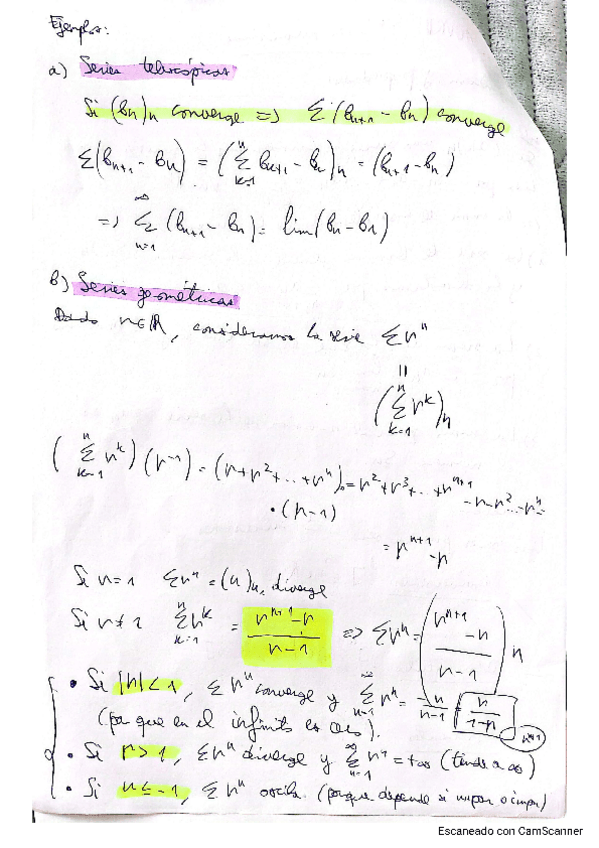 Ejemplos:
a) Series telescópicas
Si (bn)n converge => Σ(bn+1 - bn) converge
Σ(bn+1 - bn) = (Σ_{k=1}^{n} bk+1 - bk)n = (bn+1 - bn)
=> Σ_{n=1}^{∞} (bn+1 - bn) = lim(bn - b1)
b) Series geométricas
Dado r∈ℝ, consideramos la serie Σr^n
=
(Σ_{k=1}^{n} r^k)n
(Σ_{k=1}^{n} r^k)(r-1) = (r+r²+...+r^n) = r²+r³+...+r^{n+1} -r-r²...-r^n
·(r-1)
= r^{n+1} - r
Si r=1 Σr^n = (n)n, diverge
Si r≠1 Σ_{k=1}^{n} r^k = (r^{n+1} - r)/(r-1) => Σr^n = ((r^{n+1} - r)/(r-1))n
• Si |r|<1, Σr^n converge y Σ_{n=1}^{∞} r^n = -r/(r-1) = r/(1-r)
(porque en el infinito es 0).
• Si r>1, Σr^n diverge y Σ_{n=1}^{∞} r^n = +∞ (tiende a ∞)
• Si r≤-1, Σr^n oscila. (porque depende si n par o impar)
Escaneado con CamScanner